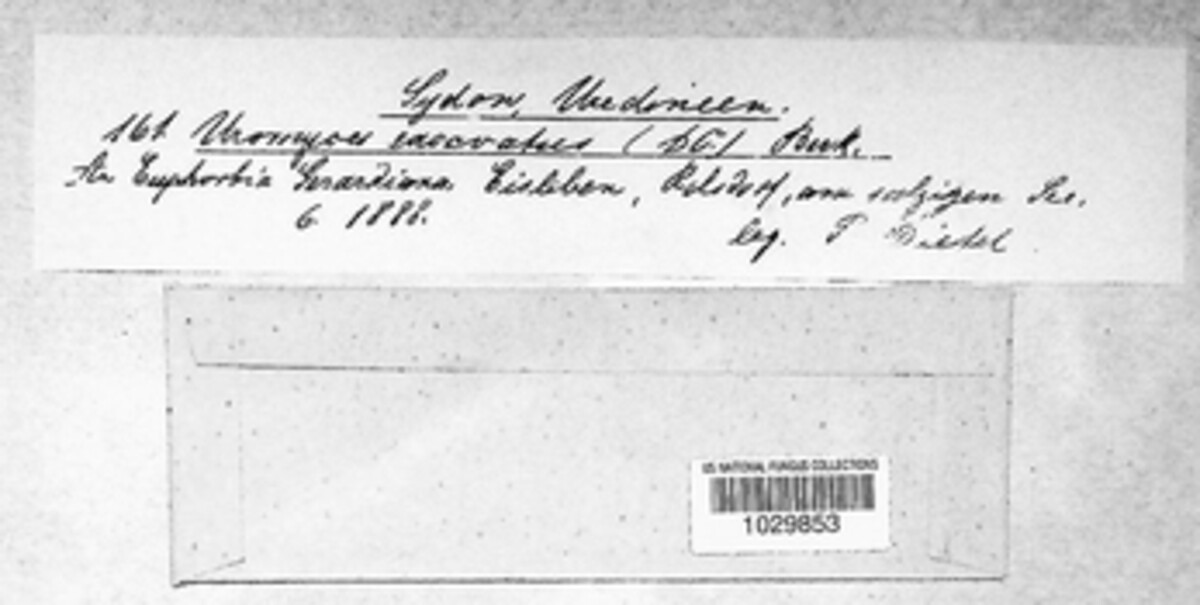 Sydow, Uredineen.
161. Uromyces excavatus (DC) Berk.
An Euphorbia Gerardiana. Eisleben, am salzigen See.
6 1888.
leg. Dietel
US NATIONAL FUNGUS COLLECTIONS
1029853